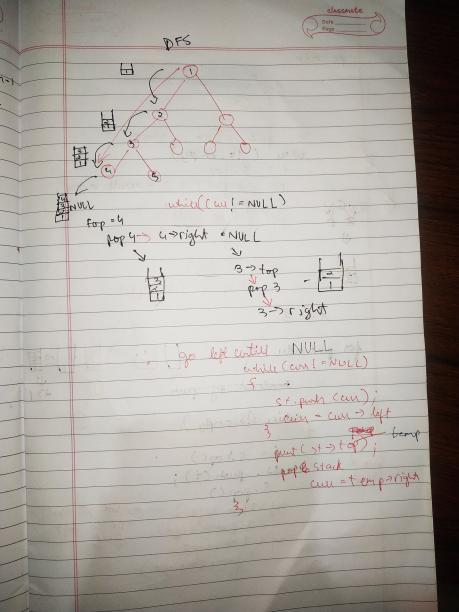 classmate
Date
Page
DFS
1
1
2
2
1
3
3
2
1
4
5
4
3
2
1
NULL
while(curr != NULL)
top = 4
pop 4 → 4→right = NULL
3
2
1
3 → top
pop 3
3 → right
2
1
go left until NULL
while (curr != NULL)
{
st.push (curr);
curr = curr → left
}
print (st → top); temp
pop stack
curr = temp→right
}